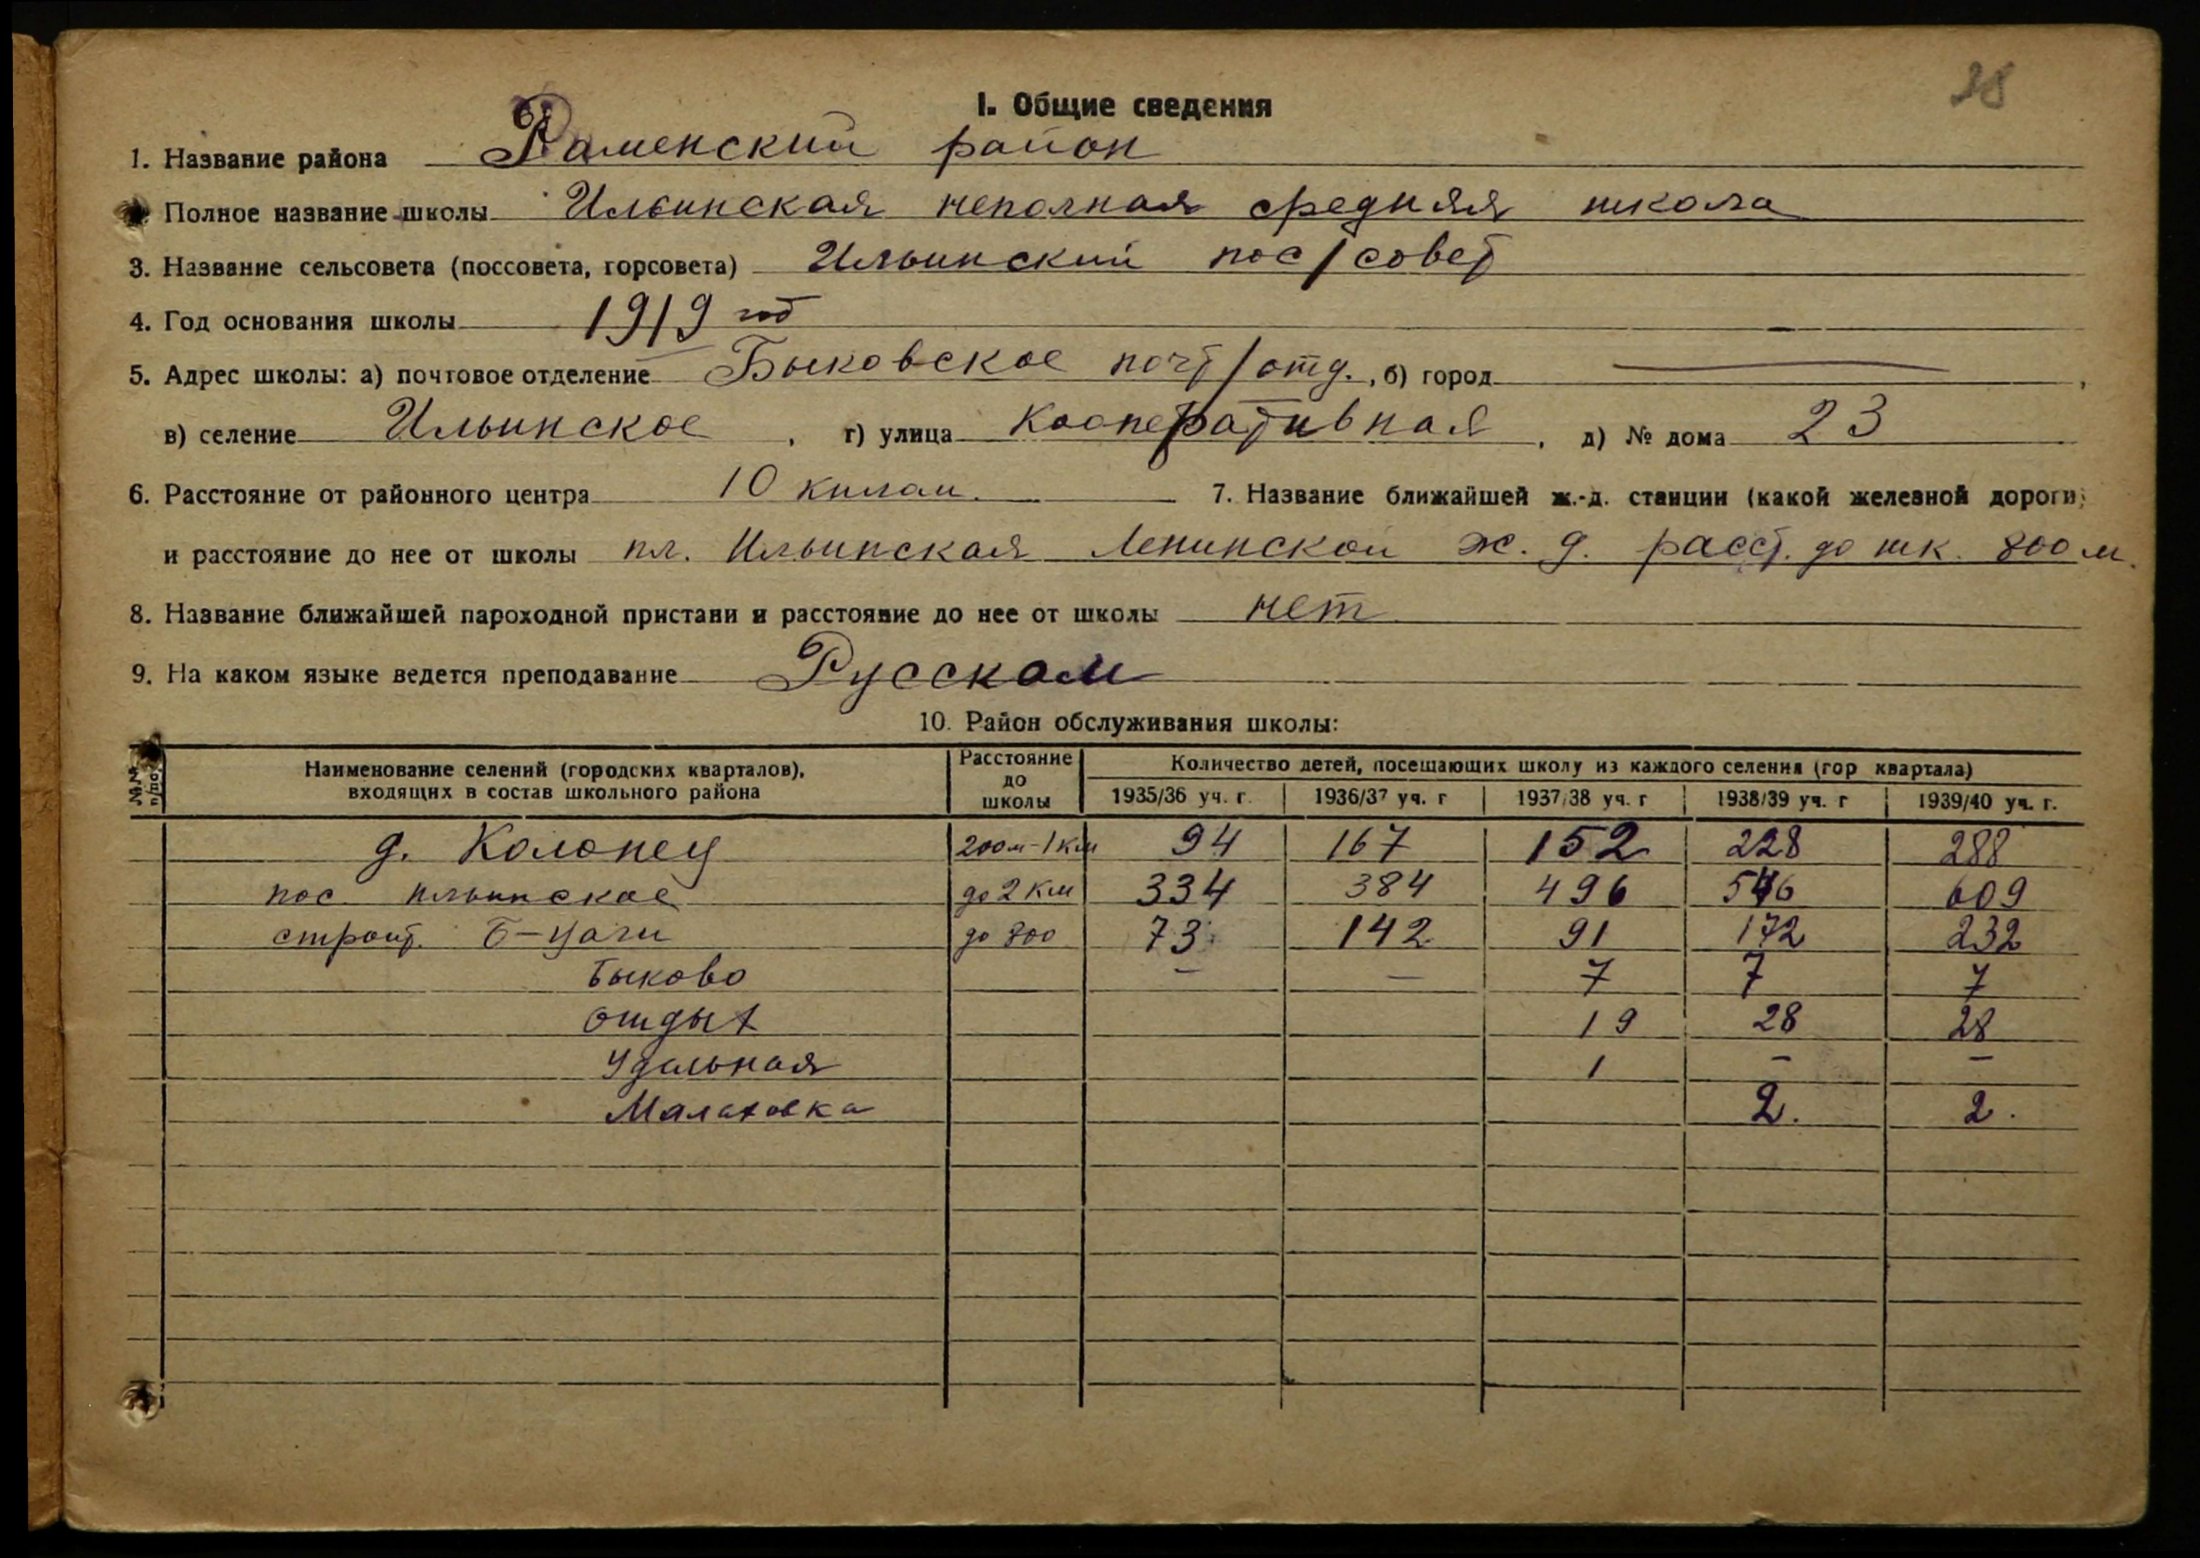 28
I. Общие сведения
1. Название района Раменский район
Полное название школы Ильинская неполная средняя школа
3. Название сельсовета (поссовета, горсовета) Ильинский пос/совет
4. Год основания школы 1919 год
5. Адрес школы: а) почтовое отделение Быковское почт/отд., б) город — ,
в) селение Ильинское, г) улица Кооперативная, д) № дома 23
6. Расстояние от районного центра 10 килом. 7. Название ближайшей ж.-д. станции (какой железной дороги)
и расстояние до нее от школы пл. Ильинская Ленинской ж. д. расст. до шк. 800 м.
8. Название ближайшей пароходной пристани и расстояние до нее от школы нет
9. На каком языке ведется преподавание Русском
10. Район обслуживания школы:
№№ п/по. Наименование селений (городских кварталов), входящих в состав школьного района Расстояние до школы Количество детей, посещающих школу из каждого селения (гор квартала)
1935/36 уч. г. 1936/37 уч. г 1937/38 уч. г 1938/39 уч. г 1939/40 уч. г.
д. Колонец 200м-1км 94 167 152 228 288
пос. ильинское до 2 км 334 384 496 546 609
строит. до 800 73 142 91 172 232
Быково — — 7 7 7
Отдых 19 28 28
Удельная 1 — —
Малаховка 2. 2.